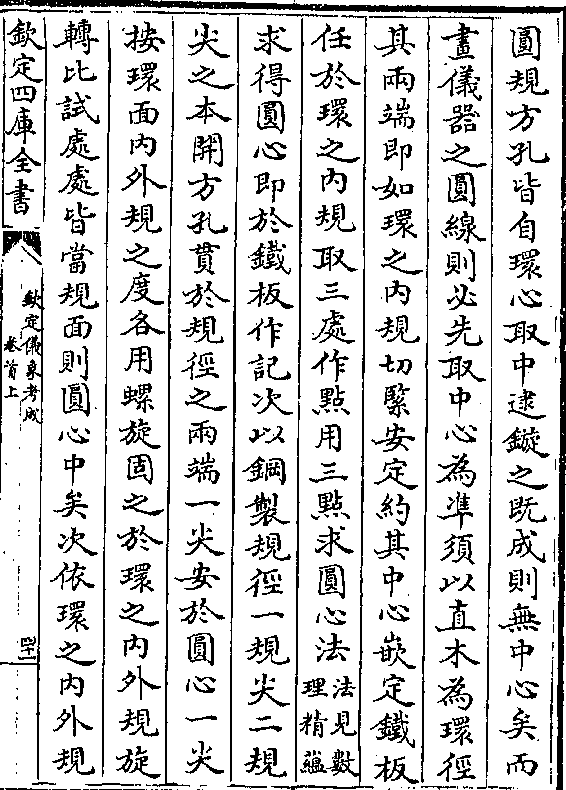 圓規方孔皆自環心取中逮鏇之既成則無中心矣而
畫儀器之圓線則必先取中心為準須以直木為環徑
其兩端即如環之内規切緊安定約其中心嵌定鐵板
任於環之内規取三處作點用三點求圓心法法見數理精蘊
求得圓心即於鐵板作記次以鋼製規徑一規尖二規
尖之本開方孔貫於規徑之兩端一尖安於圓心一尖
按環面内外規之度各用螺旋固之於環之内外規旋
轉比試處處皆當規面則圓心中矣次依環之内外規
欽定四庫全書
欽定儀象考成
卷首上